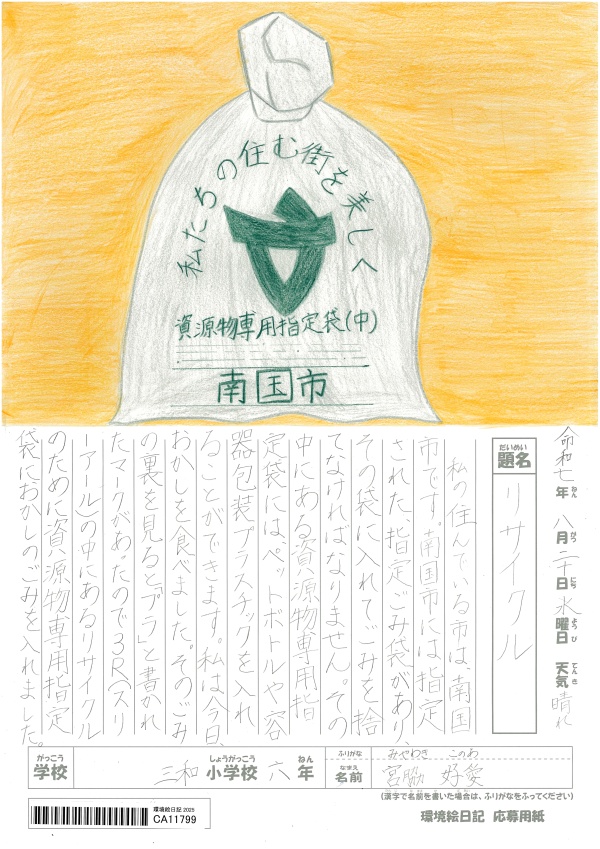 私たちの住む街を美しく
資源物専用指定袋(中)
南国市
令和七年八月二十日水曜日 天気晴れ
ねん がつ にち ようび てんき
だいめい
題名
リサイクル
私の住んでいる市は、南国
市です。南国市には指定
された、指定ごみ袋があり、
その袋に入れてごみを捨
てなければなりません。その
中にある資源物専用指
定袋には、ペットボトルや容
器包装プラスチックを入れ
ることができます。私は今日、
おかしを食べました。そのごみ
の裏を見ると「プラ」と書かれ
たマークがあったので3R(スリ
ーアール)の中にあるリサイクル
のために資源物専用指定
袋におかしのごみを入れました。
がっこう しょうがっこう ねん
学校 三和小学校六年
ふりがな みやわき このあ
なまえ
名前 宮脇 好愛
(漢字で名前を書いた場合は、ふりがなをふってください)
環境絵日記 2025
CA11799
環境絵日記 応募用紙